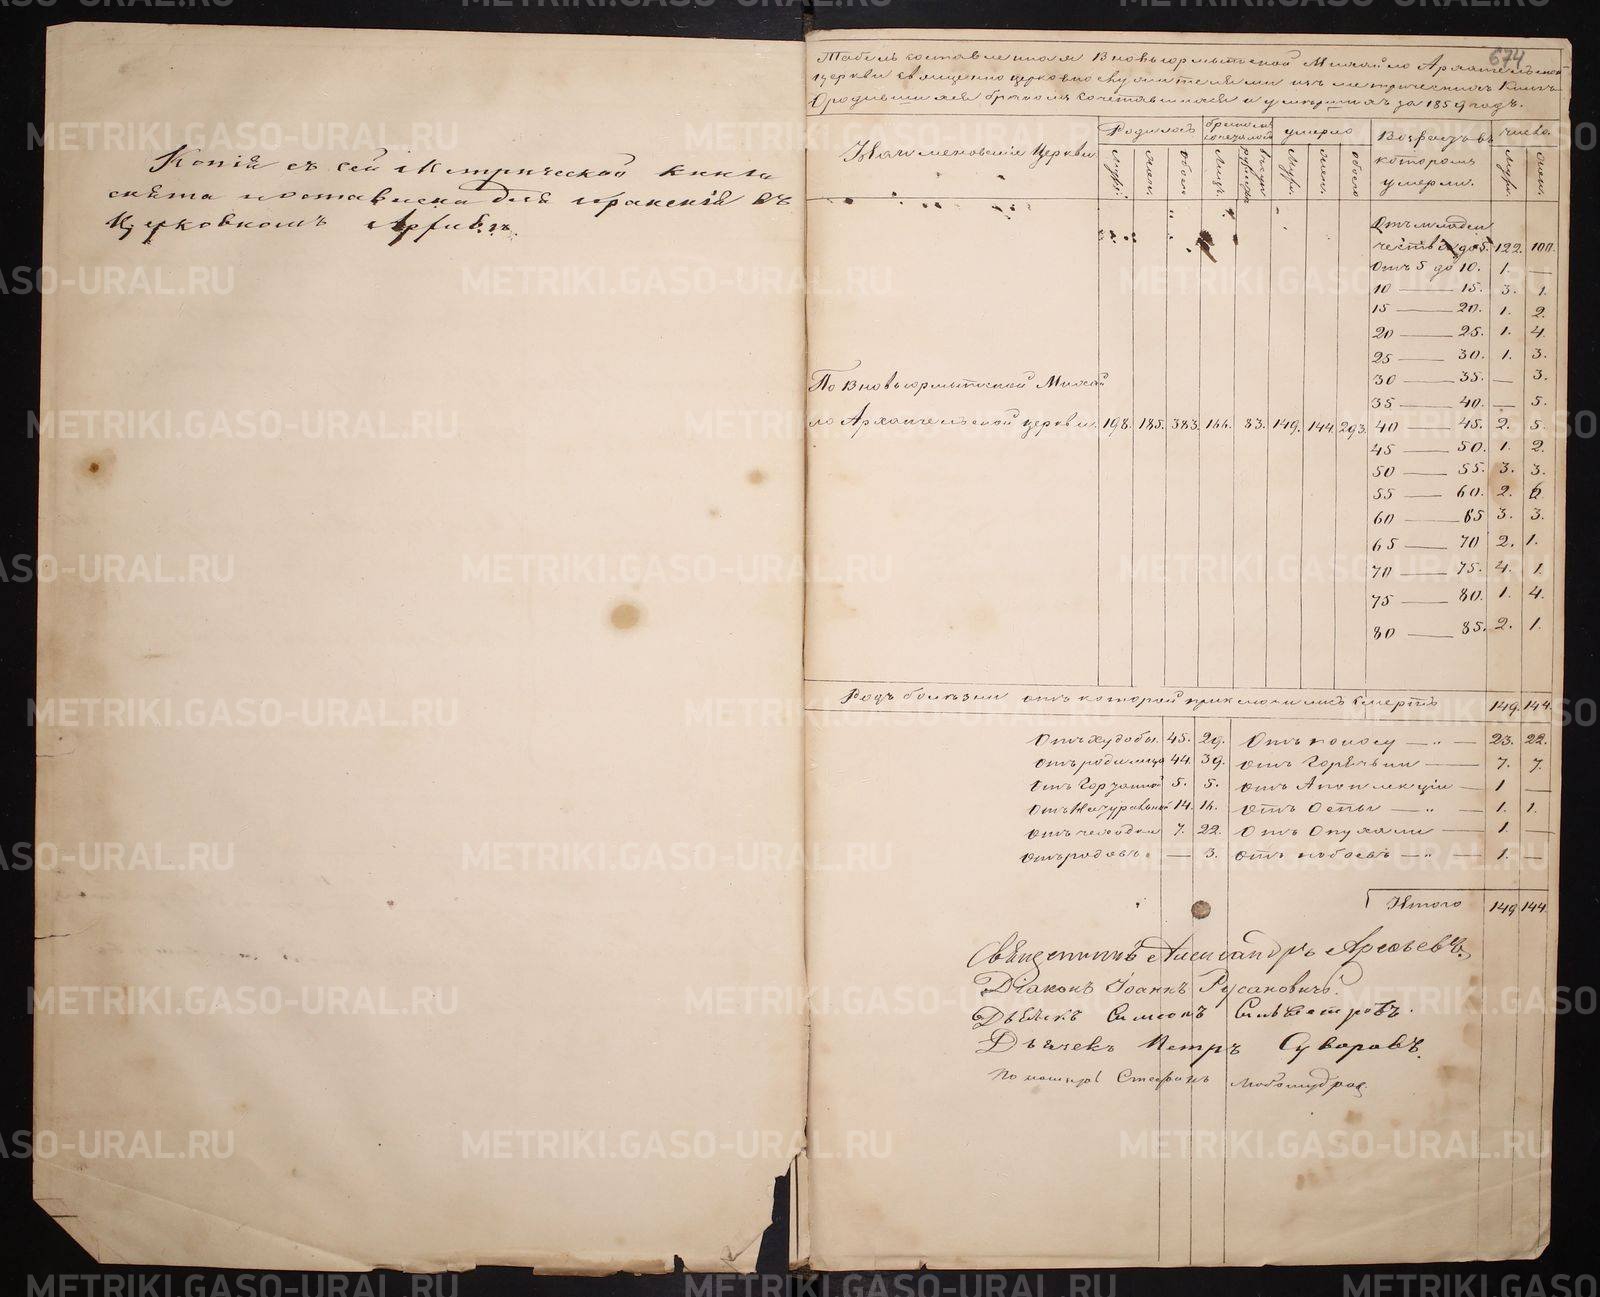 Копія съ сей Метрической книги
снята и оставлена для храненія въ
Церковномъ Архивѣ.
674
Табель составленная Вновьюрмытской Михайло Архангельской
церкви священно церковно служителями изъ метрическихъ книгъ
О родившихся бракомъ сочетавшихся и умершихъ за 1859 годъ.
Наименованіе Церкви
Родилось
бракомъ сочеталось
умерло
Возрастъ въ
которомъ
умерли.
число.
муж.
жен.
обоего
муж.
жен.
обоего
муж.
жен.
Отъ младен
чества до 5. 122. 100.
Отъ 5 до 10. 1. —
10 — 15. 3. 1.
15 — 20. 1. 2.
20 — 25. 1. 4.
25 — 30. 1. 3.
По Вновьюрмытской Михай
30 — 35. — 3.
35 — 40. — 5.
ло Архангельской церкви. 198. 185. 383. 166. 83. 149. 144. 293. 40 — 45. 2. 5.
45 — 50. 1. 2.
50 — 55. 3. 3.
55 — 60. 2. 6.
60 — 65 3. 3.
65 — 70 2. 1.
70 — 75. 4. 1.
75 — 80. 1. 4.
80 — 85. 2. 1.
Родъ болѣзни отъ которой приключилась смерть 149. 144.
Отъ худобы. 45. 29. Отъ поносу — „ — 23. 22.
Отъ родимца 44. 39. Отъ Горячьки — 7. 7.
Отъ 5. 5. Отъ Апоплекціи — 1 —
Отъ Натуральной 14. 16. Отъ Оспы — „ 1. 1.
Отъ чахотки 7. 22. Отъ Опухоли — 1. —
Отъ родовъ. — 3. Отъ побоевъ — „ — 1. —
Итого 149 144.
Священникъ Александръ Арефьевъ.
Діаконъ Іоаннъ Русановичъ.
Дьячекъ Симеонъ Сильвестровъ.
Дьячекъ Петръ Суворовъ.
Пономарь Стефанъ Любомудров